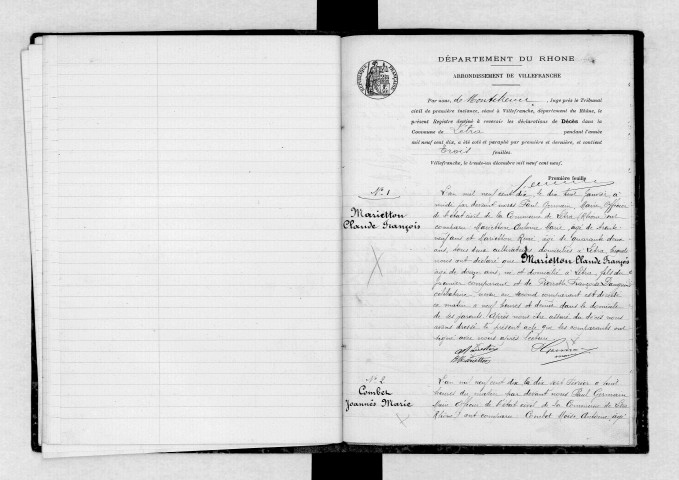 DÉPARTEMENT DU RHONE
ARRONDISSEMENT DE VILLEFRANCHE
Par nous, de Montchenu, Juge près le Tribunal
civil de première instance, séant à Villefranche, département du Rhône, le
présent Registre destiné à recevoir les déclarations de Décès dans la
Commune de Létra pendant l'année
mil neuf cent dix, a été coté et paraphé par première et dernière, et contient
trois feuilles.
Villefranche, le trente-un décembre mil neuf cent neuf.
Première feuille
N° 1
Marietton
Claude François
L'an mil neuf cent dix le dix Janvier à
midi par devant nous Paul Germain Maire Officier
de l'état civil de la Commune de Létra (Rhône) ont
comparu Marietton Antoine Marie, âgé de trente
neuf ans et Marietton Rémi âgé de quarante deux
ans, tous deux cultivateurs domiciliés à Létra, lesquels
nous ont déclaré que Marietton Claude François
âgé de douze ans, né et domicilié à Létra, fils du
premier comparant et de Pierrette Françoise
célibataire, neveu du second comparant est décédé
ce matin à neuf heures et demie dans le domicile
de ses parents. Après nous être assuré du décès nous
avons dressé le présent acte que les comparants ont
signé avec nous après lecture
Marietton
N° 2
Combet
Joannès Marie
L'an mil neuf cent dix le dix sept Février à
heures du matin par devant nous Paul Germain
Maire Officier de l'état civil de la Commune de Létra
(Rhône) ont comparu Combet Antoine, âgé